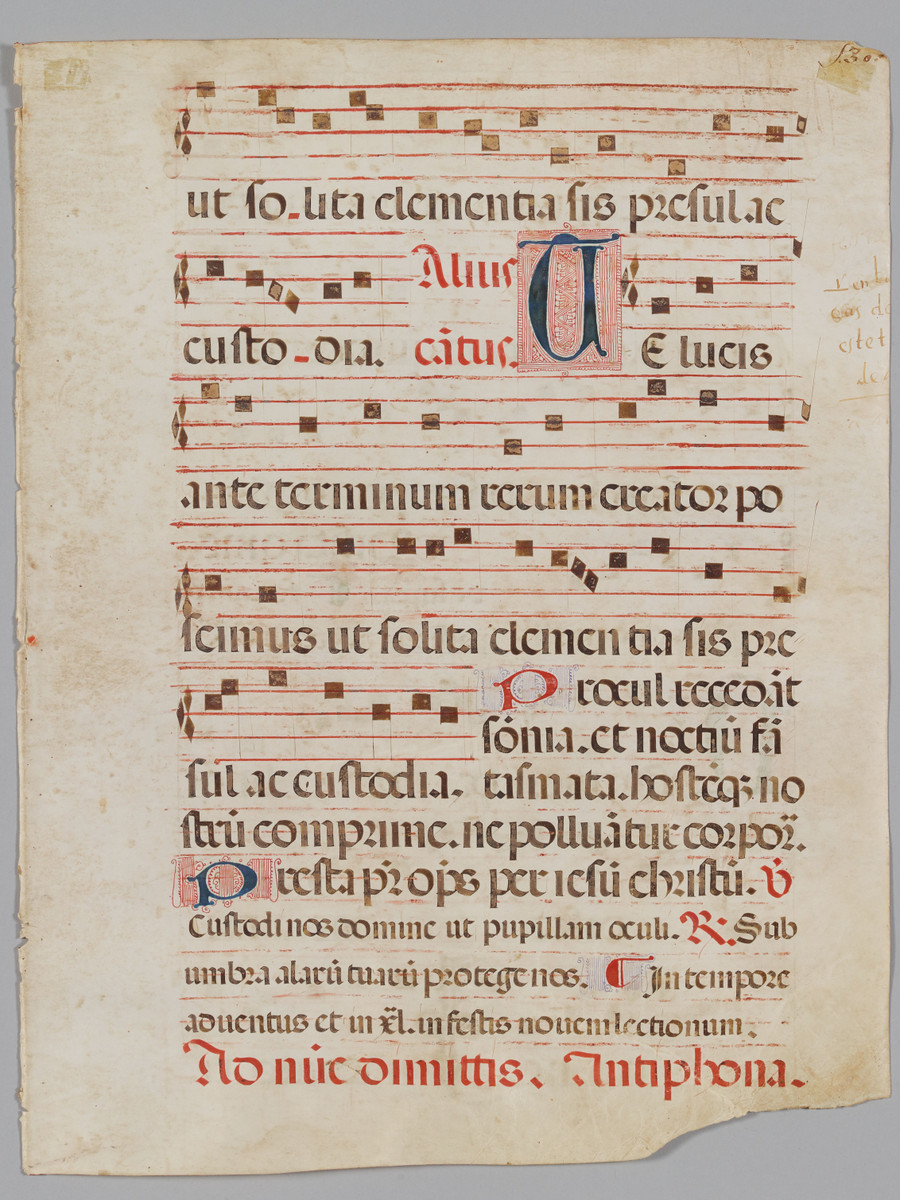 530
ut so-lita clementia sis presul ac
Alius
custo-dia. cātus. TE lucis
ante terminum rerum creator po
scimus ut solita clemen tia sis pre
Procul recedāt
sōnia. et noctiū fā
sul ac custodia. tasmata. hostēq; no
strū comprime. ne polluātur corpor̄.
Presta pr̄ ōps per iesū christū. V̄
Custodi nos domine ut pupillam oculi. R. Sub
umbra alarū tuarū protege nos. In tempore
aduentus et in xl. in festis nouem lectionum.
Ad nūc dimittis. Antiphona.